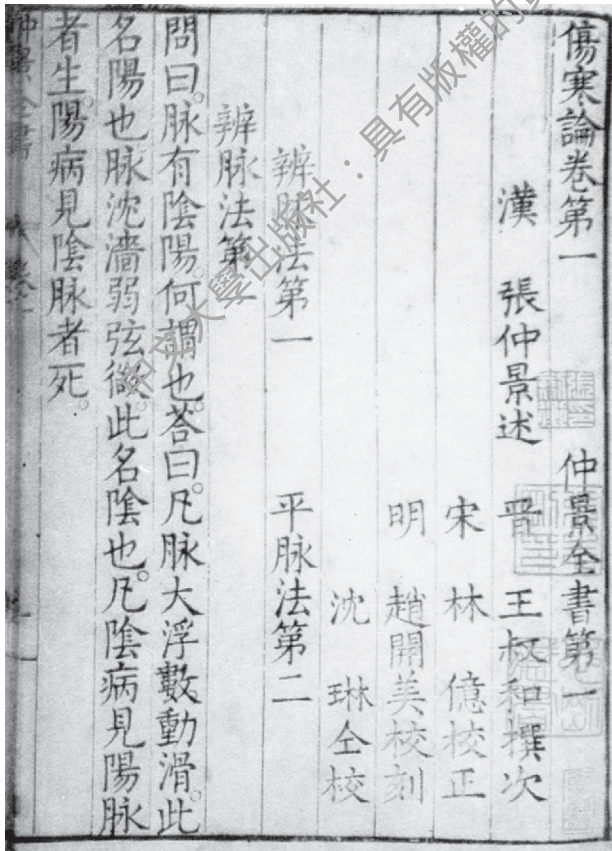 傷寒論卷第一 仲景全書第一
漢 張仲景述 晉 王叔和撰次
宋 林 億校正
明 趙開美校刻
沈 琳仝校
辨脉法第一 平脉法第二
辨脉法第一
問曰。脉有陰陽。何謂也。荅曰。凡脉大浮數動滑。此
名陽也。脉沈濇弱弦微。此名陰也。凡陰病見陽脉
者生。陽病見陰脉者死。
大學出版社:具有版權的